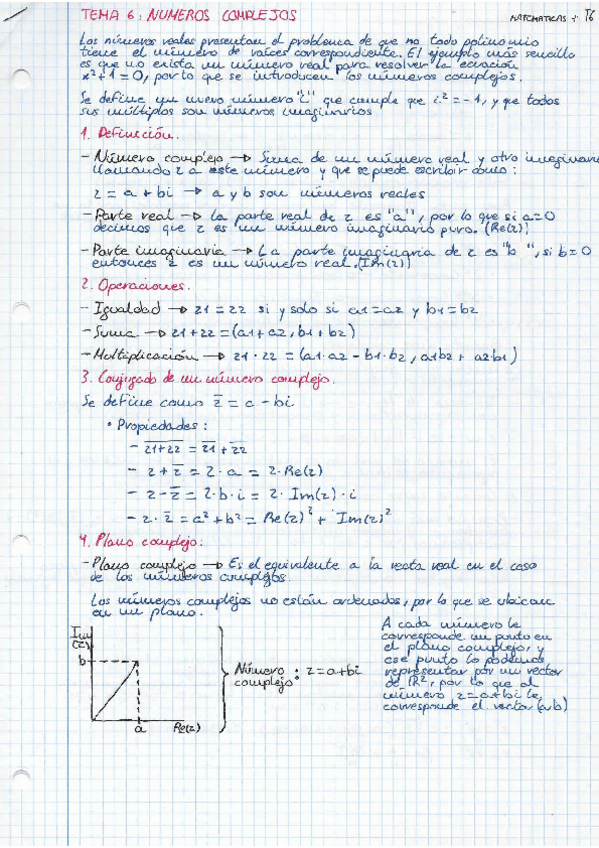 TEMA 6: NUMEROS COMPLEJOS
MATEMATICAS I T6
Los números reales presentan el problema de que no todo polinomio
tiene el número de raíces correspondiente. El ejemplo más sencillo
es que no exista un número real para resolver la ecuación
x²+1=0, por lo que se introducen los números complejos.
Se define un nuevo número "i" que cumple que i²=-1, y que todos
sus múltiplos son números imaginarios
1. Definición.
- Número complejo → Suma de un número real y otro imaginario
llamando z a este número y que se puede escribir como:
z = a + bi → a y b son números reales
- Parte real → La parte real de z es "a", por lo que si a=0
decimos que z es un número imaginario puro. (Re(z))
- Parte imaginaria → La parte imaginaria de z es "b", si b=0
entonces z es un número real. (Im(z))
2. Operaciones.
- Igualdad → z1=z2 si y solo si a1=a2 y b1=b2
- Suma → z1+z2=(a1+a2, b1+b2)
- Multiplicación → z1·z2 = (a1·a2 - b1·b2, a1b2 + a2·b1)
3. Conjugado de un número complejo.
Se define como z̅ = a - bi
• Propiedades:
- z̅1̅+̅z̅2̅ = z̅1̅ + z̅2̅
- z + z̅ = 2·a = 2·Re(z)
- z - z̅ = 2·b·i = 2·Im(z)·i
- z·z̅ = a²+b² = Re(z)² + Im(z)²
4. Plano complejo:
- Plano complejo → Es el equivalente a la recta real en el caso
de los números complejos.
Los números complejos no están ordenados, por lo que se ubican
en un plano.
Im
(z)
b
a
Re(z)
Número
complejo: z=a+bi
A cada número le
corresponde un punto en
el plano complejo, y
ese punto lo podemos
representar por un vector
de ℝ², por lo que al
número z=a+bi le
corresponde el vector (a,b)